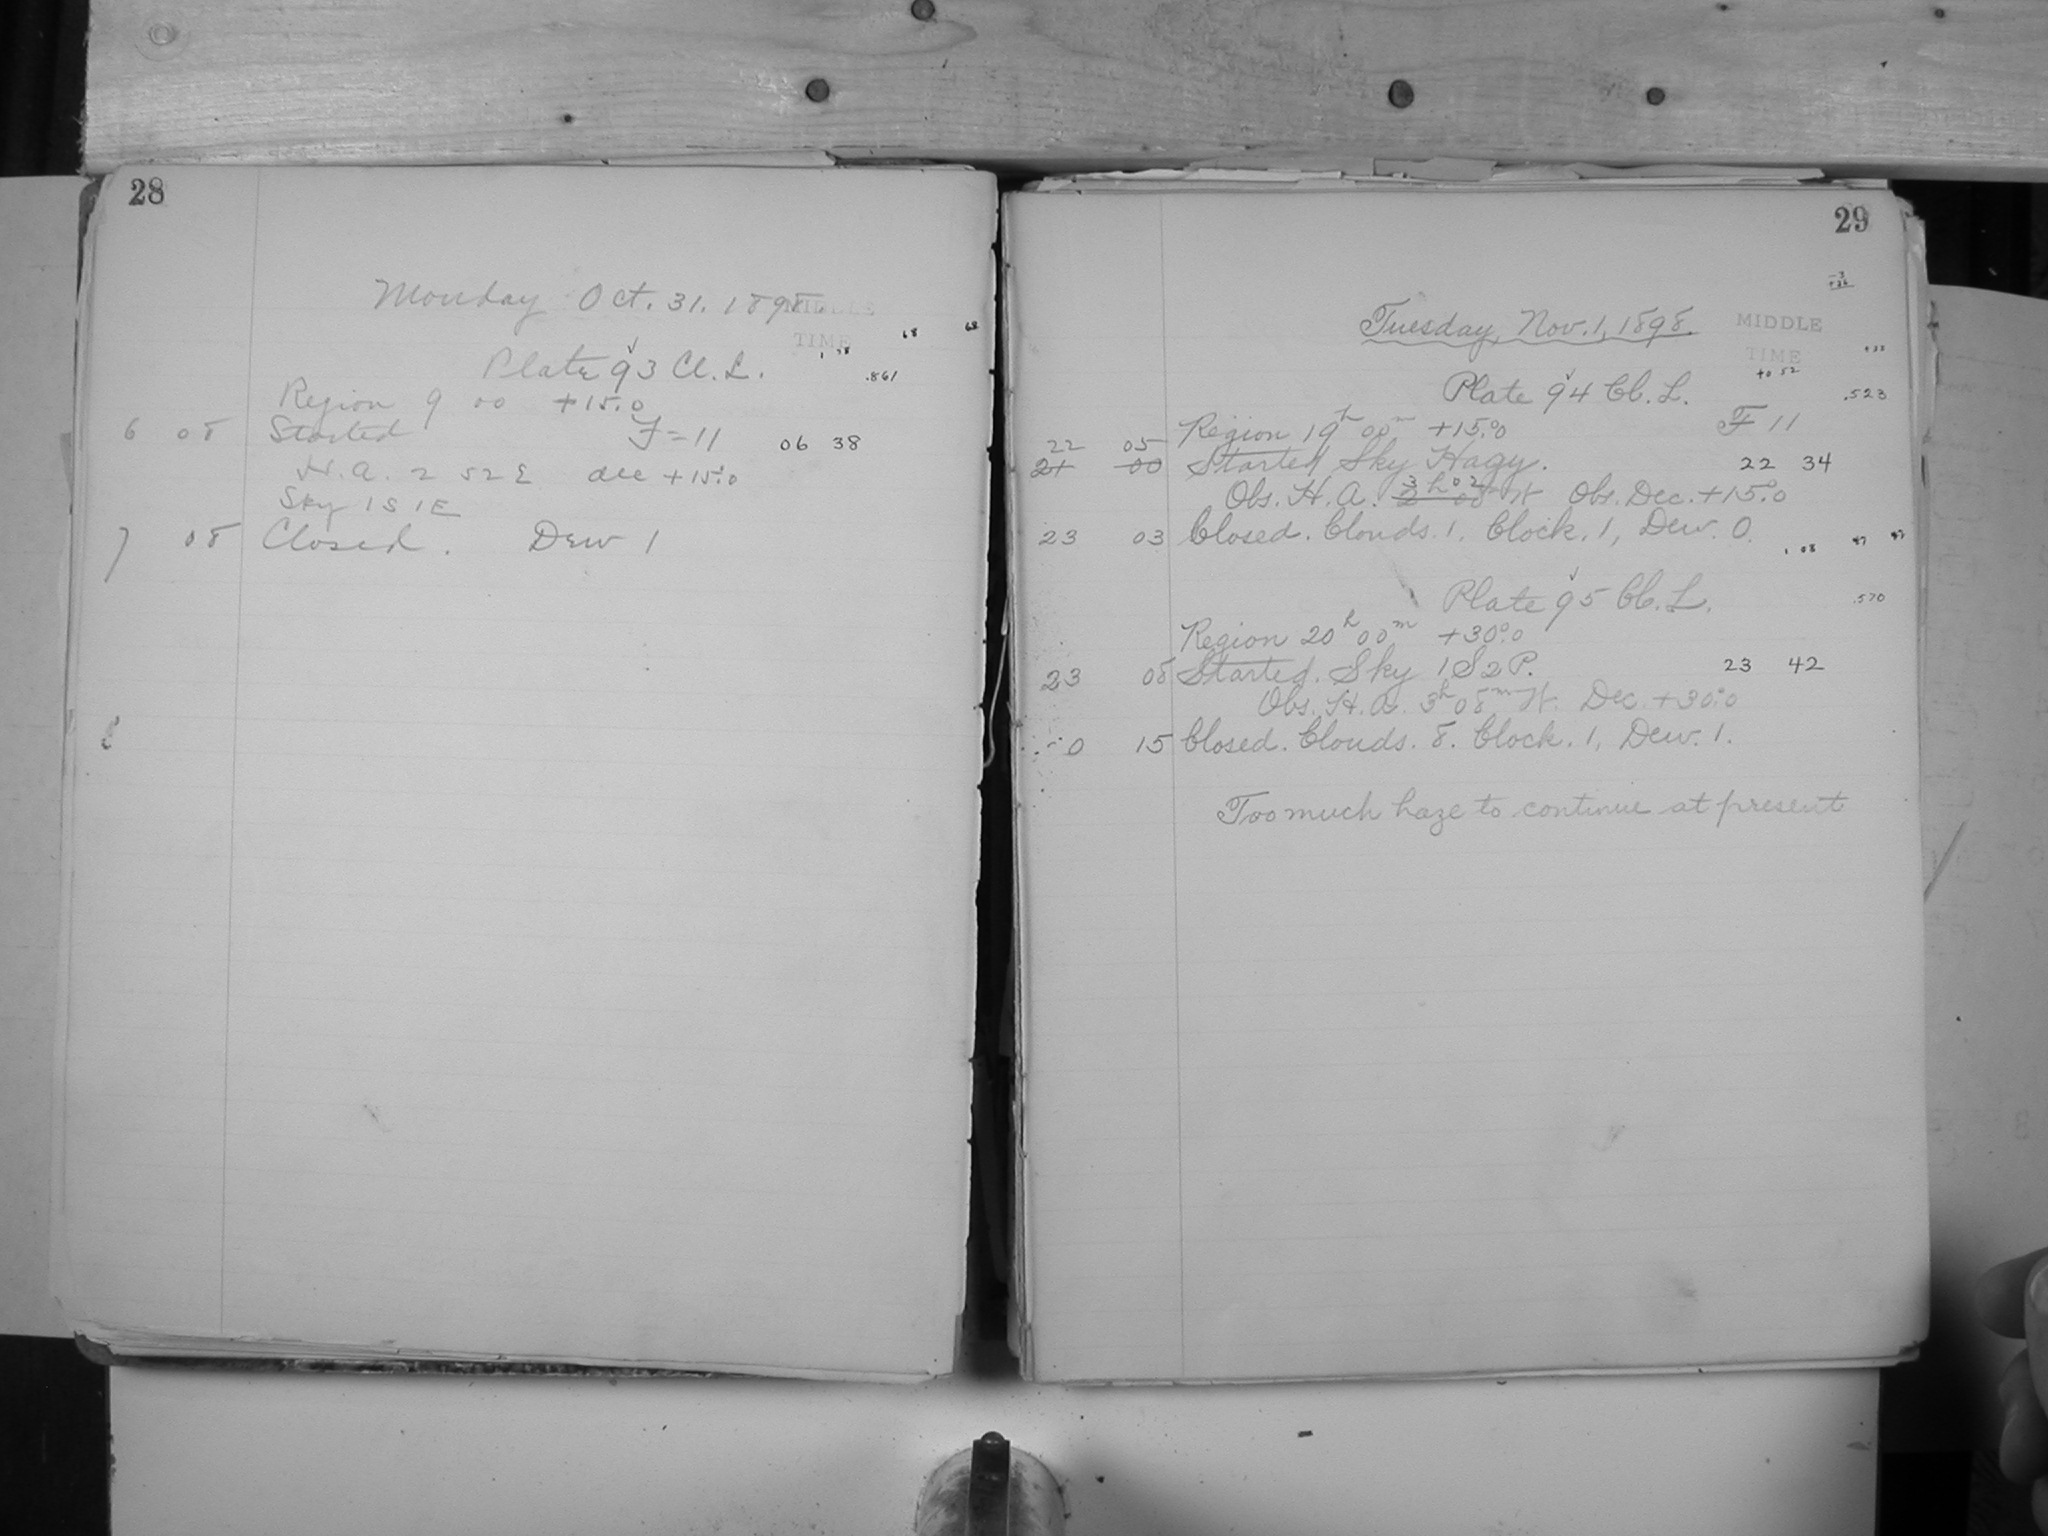 28
Monday Oct. 31. 1898.
MIDDLE
TIME
68 68
1 38
Plate 93 Cl. L. .861
Region 9 00 +15.0
6 08 Started F=11 06 38
H.A. 2 52 E dec +15.0
Sky 1S 1E
7 08 Closed. Dew 1
29
-3
Tuesday, Nov. 1, 1898.
MIDDLE
TIME
+0 52
Plate 94 Cb. L. .523
Region 19h 00m +15.°0 F 11
22 05
21 00 Started Sky Hazy. 22 34
3h 02
Obs. H. A. 2 00m W Obs. Dec. +15.°0
23 03 Closed. Clouds. 1, Clock. 1, Dew. 0.
1 08 47 47
Plate 95 Cb. L. .570
Region 20h 00m +30.°0
23 08 Started. Sky 1S2P. 23 42
Obs. H. A. 3h 08m W. Dec. +30.°0
0 15 Closed. Clouds. 8. Clock. 1, Dew. 1.
Too much haze to continue at present